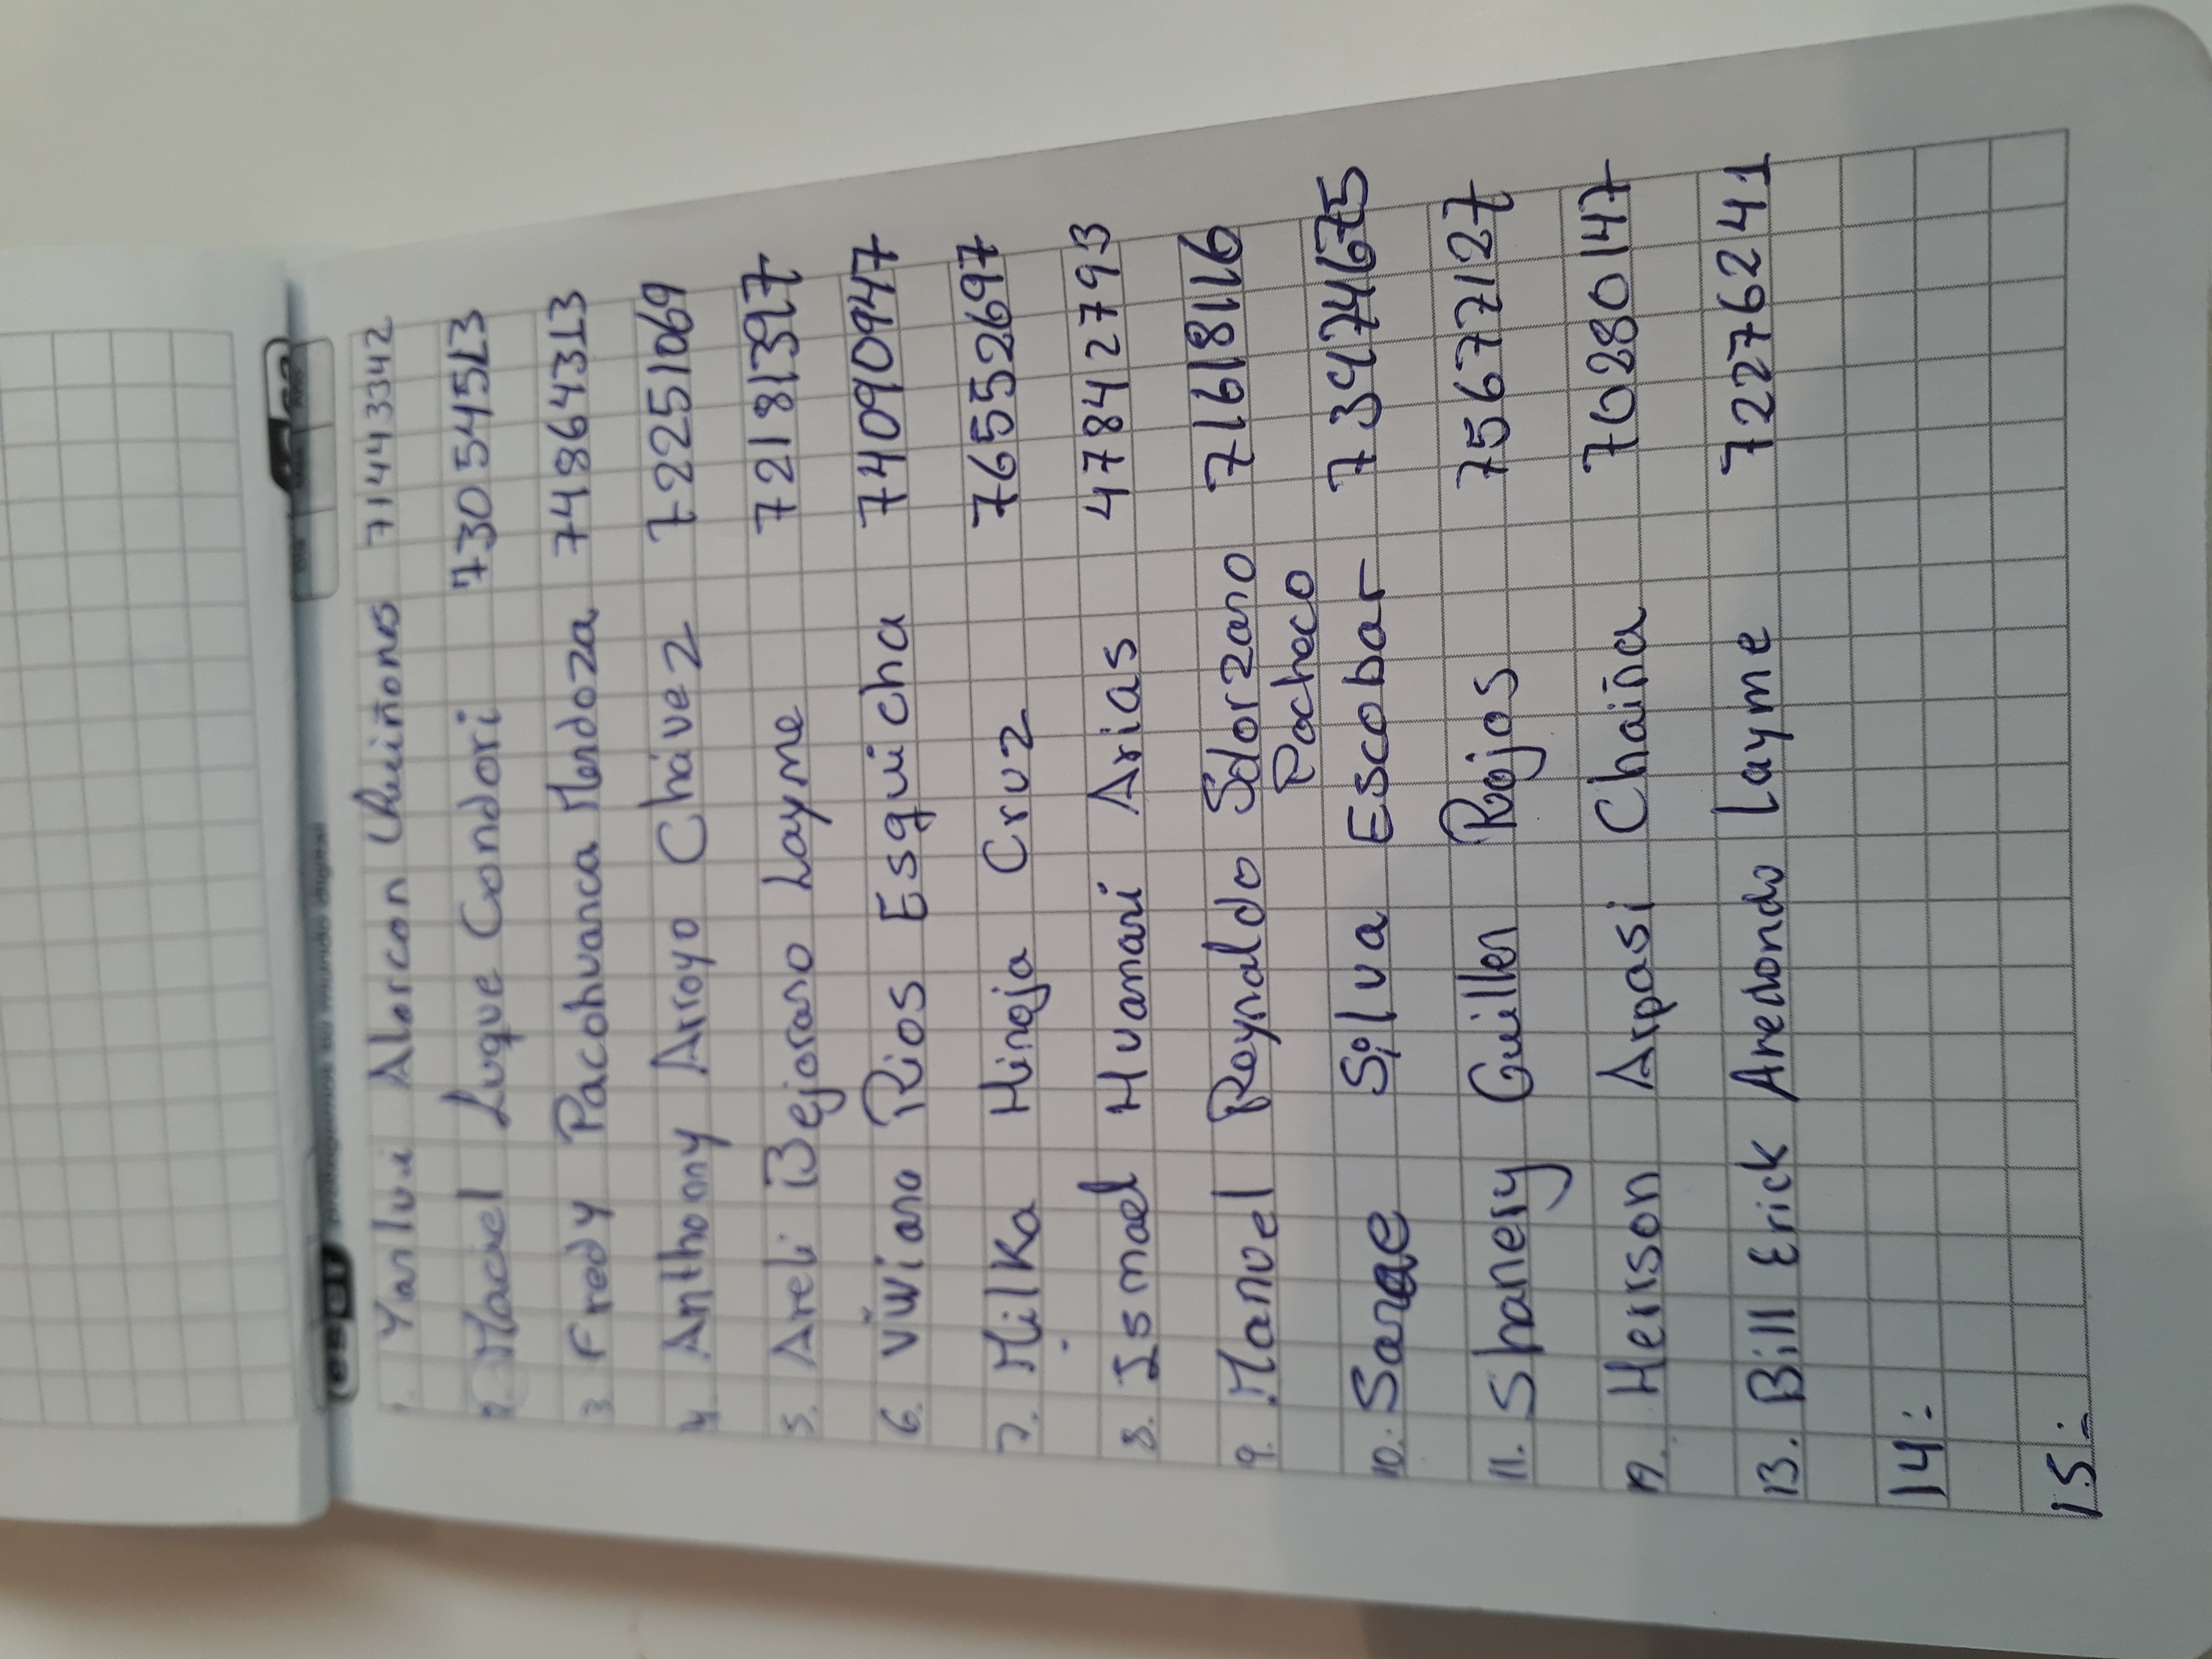 eset protegemos su mundo digital
Día Mes Año
1. Yanlui Alarcon Quiñones 71443342
2. Maciel Luque Condori 73054513
3 Fredy Pacohuanca Mendoza 74864313
4. Anthonny Arroyo Chávez 72251069
5. Areli Bejarano Layme 72181397
6. Viviana Rios Esquicha 74090947
7. Milka Hinoja Cruz 76552697
8. Ismael Huamani Arias 47842793
9. Manuel Reynaldo Solorzano 71618116
Pacheco
10. Sarae Silva Escobar 73474675
11. Shanery Guillen Rojas 75677127
12. Herrson Arpasi Chaiña 70280147
13. Bill Erick Aredondo Layme 72276241
14:
15: